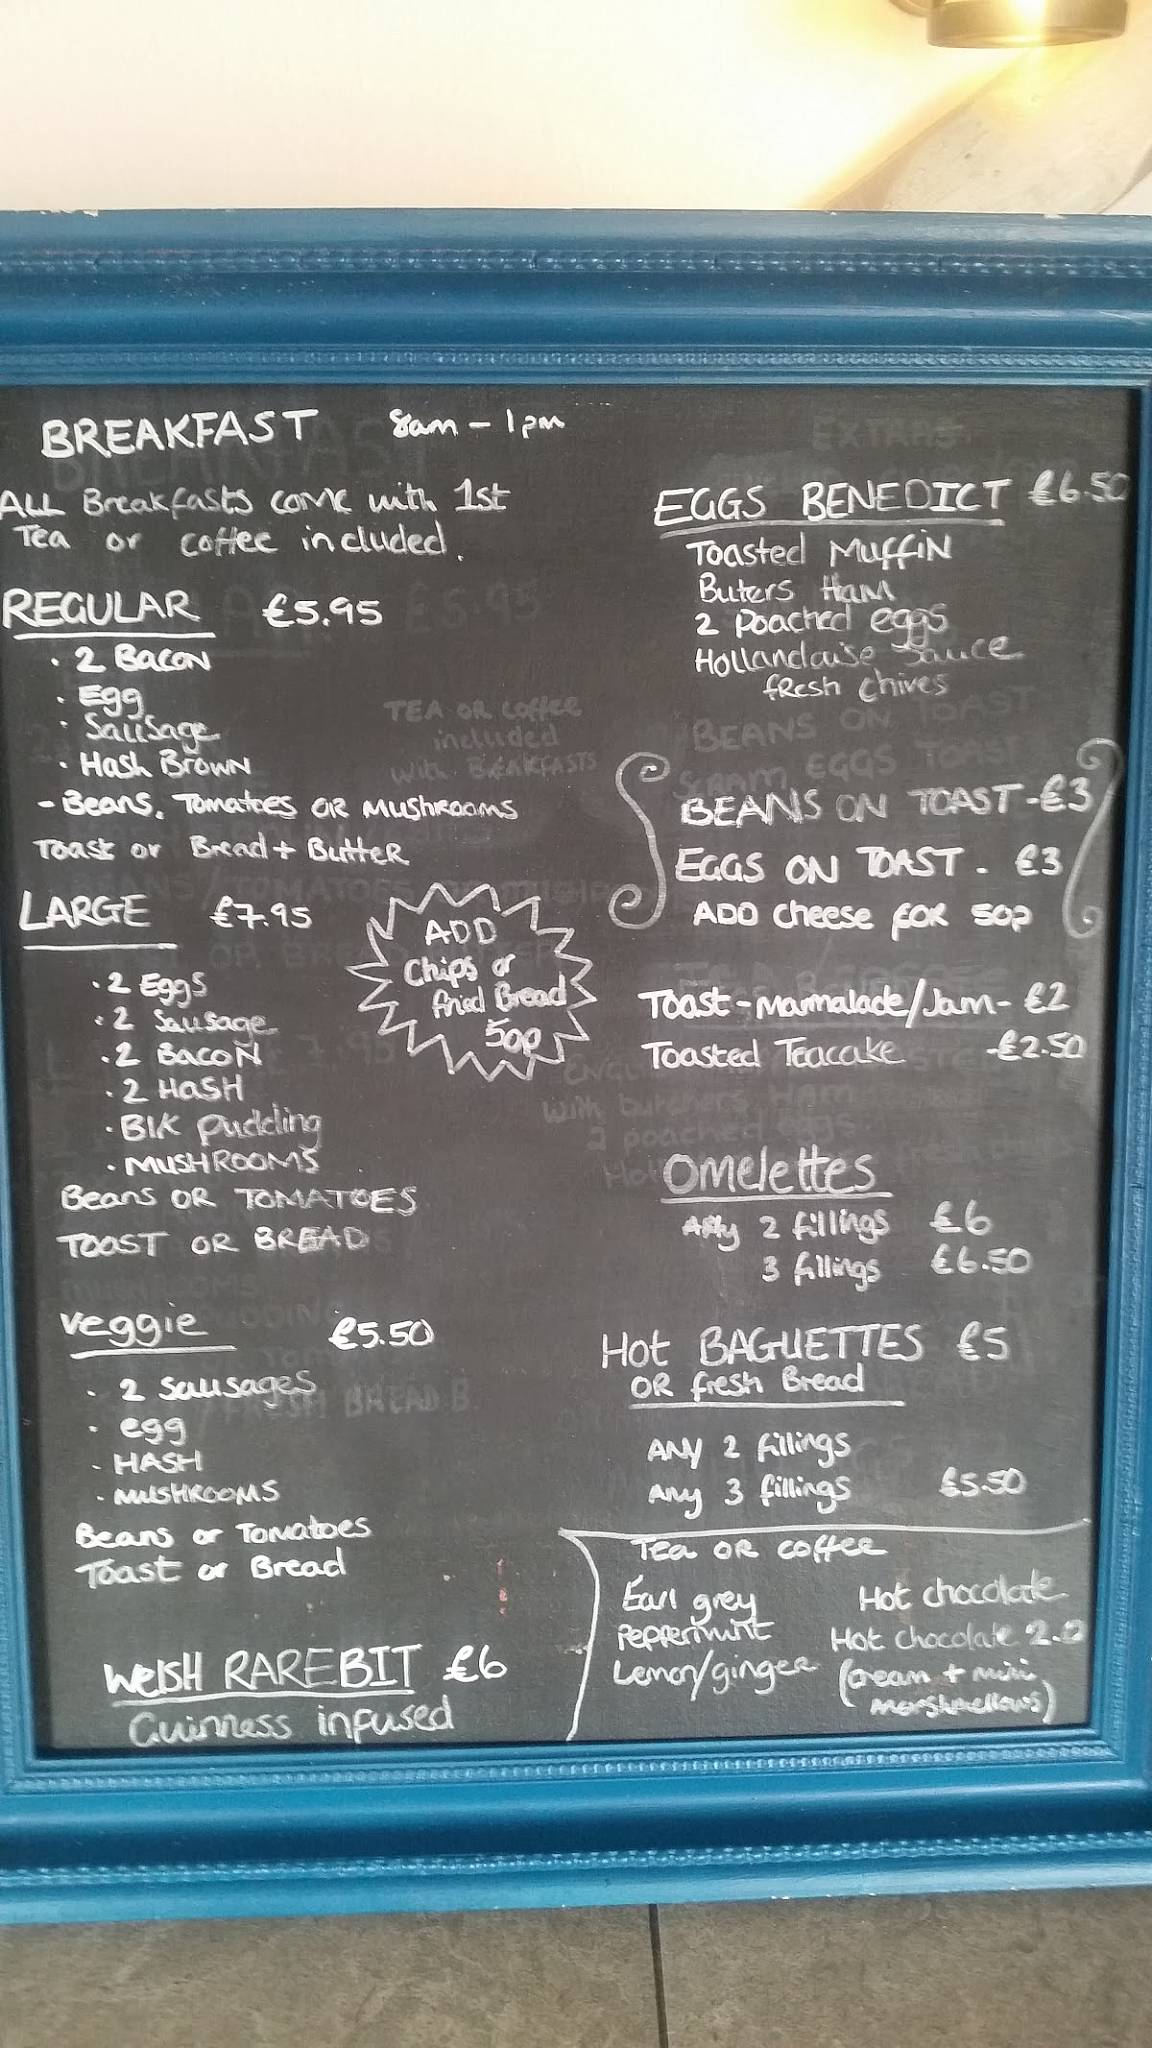 BREAKFAST 8am - 1pm
ALL Breakfasts come with 1st
Tea or coffee included.
REGULAR £5.95
· 2 Bacon
· Egg
· Sausage
· Hash Brown
- Beans, Tomatoes OR Mushrooms
Toast or Bread + Butter
LARGE £7.95
· 2 Eggs
· 2 Sausage
· 2 Bacon
· 2 Hash
· Blk pudding
· MUSHROOMS
Beans OR TOMATOES
TOAST OR BREAD
ADD
Chips or
fried Bread
50p
Veggie £5.50
· 2 Sausages
· egg
- HASH
· MUSHROOMS
Beans or Tomatoes
Toast or Bread
WELSH RAREBIT £6
Guinness infused
EGGS BENEDICT £6.50
Toasted Muffin
Buters Ham
2 Poached eggs
Hollandaise Sauce
fresh chives
BEANS ON TOAST - £3
EGGS ON TOAST - £3
ADD cheese for 50p
Toast - Marmalade/Jam - £2
Toasted Teacake - £2.50
Omelettes
Any 2 fillings £6
3 fillings £6.50
Hot BAGUETTES £5
OR fresh Bread
ANY 2 fillings
Any 3 fillings £5.50
Tea OR coffee
Earl grey
Peppermint
Lemon/ginger
Hot chocolate
Hot chocolate
(cream + mini
marshmellows)